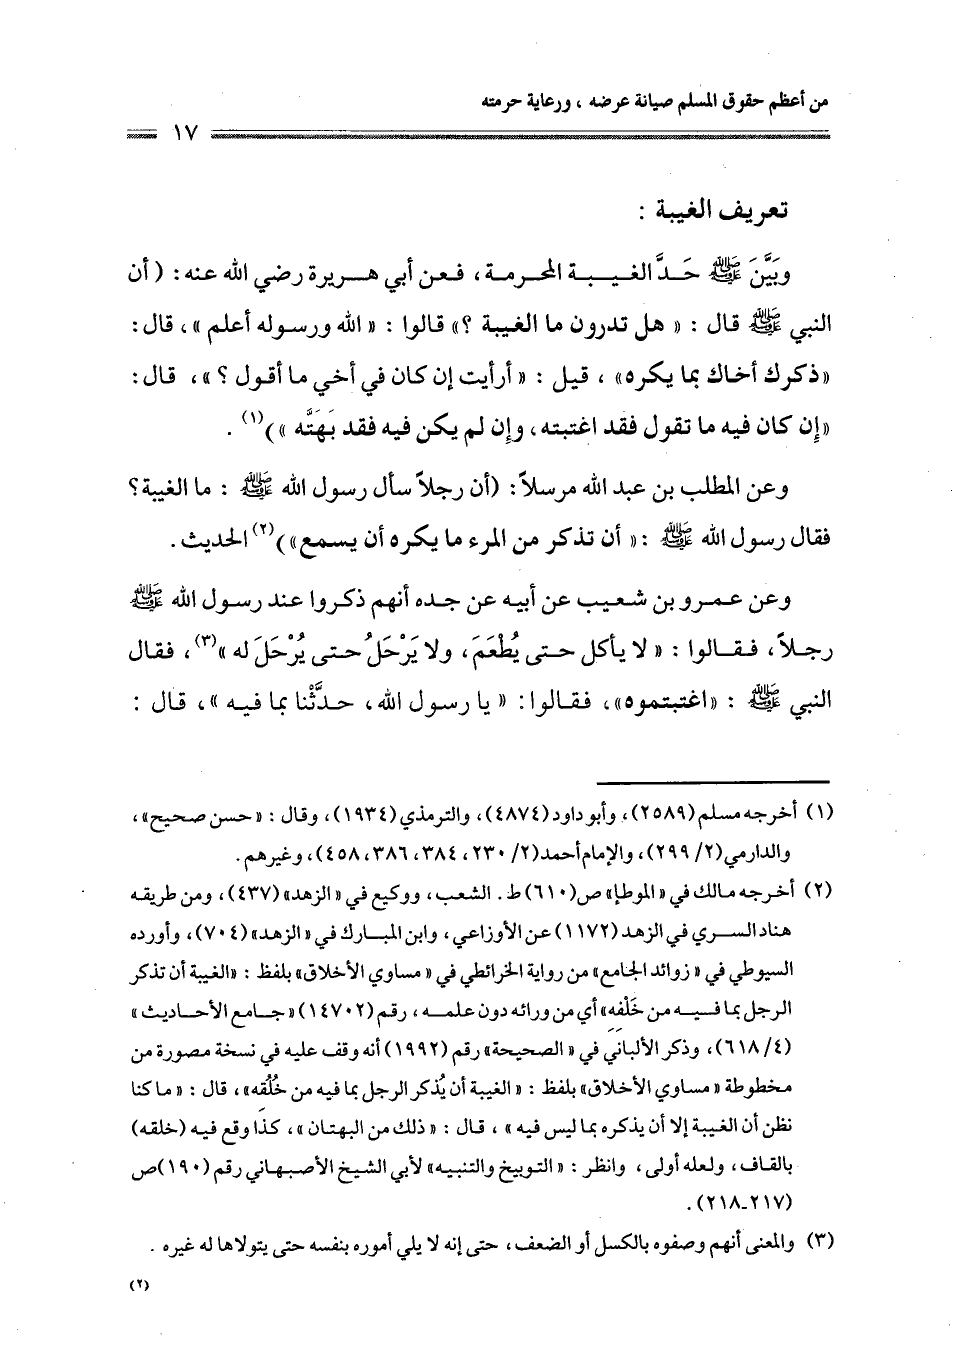 من أعظم حقوق المسلم صيانة عرضه ، ورعاية حرمته
١٧
تعريف الغيبة :
وبَيَّنَ ﷺ حَدَّ الغيبة المحرمة، فعن أبي هريرة رضي الله عنه: (أن
النبي ﷺ قال : « هل تدرون ما الغيبة ؟» قالوا : « الله ورسوله أعلم »، قال:
«ذكرك أخاك بما يكره» ، قيل : « أرأيت إن كان في أخي ما أقول ؟ »، قال:
«إن كان فيه ما تقول فقد اغتبته، وإن لم يكن فيه فقد بَهَتَّه »)(١) .
وعن المطلب بن عبد الله مرسلاً: (أن رجلاً سأل رسول الله ﷺ : ما الغيبة؟
فقال رسول الله ﷺ :« أن تذكر من المرء ما يكره أن يسمع»)(٢) الحديث .
وعن عمرو بن شعيب عن أبيه عن جده أنهم ذكروا عند رسول الله ﷺ
رجلاً، فقالوا : « لا يأكل حتى يُطْعَمَ، ولا يَرْحَلُ حتى يُرْحَلَ له »(٣)، فقال
النبي ﷺ : «اغتبتموه»، فقالوا: « يا رسول الله، حدَّثْنا بما فيه »، قال :
(١) أخرجه مسلم (٢٥٨٩)، وأبو داود (٤٨٧٤)، والترمذي (١٩٣٤)، وقال : «حسن صحيح»،
والدارمي (٢/ ٢٩٩)، والإمام أحمد (٢/ ٢٣٠، ٣٨٤، ٣٨٦، ٤٥٨)، وغيرهم .
(٢) أخرجه مالك في « الموطإ» ص (٦١٠) ط . الشعب، ووكيع في « الزهد» (٤٣٧)، ومن طريقه
هناد السري في الزهد (١١٧٢) عن الأوزاعي، وابن المبارك في «الزهد» (٧٠٤)، وأورده
السيوطي في « زوائد الجامع» من رواية الخرائطي في « مساوي الأخلاق» بلفظ : «الغيبة أن تذكر
الرجل بما فيه من خَلْفِه» أي من ورائه دون علمه ، رقم (١٤٧٠٢) «جامع الأحاديث »
(٤/ ٦١٨)، وذكر الألباني في « الصحيحة» رقم (١٩٩٢) أنه وقف عليه في نسخة مصورة من
مخطوطة « مساوي الأخلاق» بلفظ : « الغيبة أن يُذكر الرجل بما فيه من خُلُقِه» ، قال : « ما كنا
نظن أن الغيبة إلا أن يذكره بما ليس فيه » ، قال : « ذلك من البهتان » ، كذا وقع فيه (خلقه)
بالقاف، ولعله أولى، وانظر : « التوبيخ والتنبيه» لأبي الشيخ الأصبهاني رقم (١٩٠) ص
(٢١٧ـ٢١٨) .
(٣) والمعنى أنهم وصفوه بالكسل أو الضعف، حتى إنه لا يلي أموره بنفسه حتى يتولاها له غيره .
(٢)